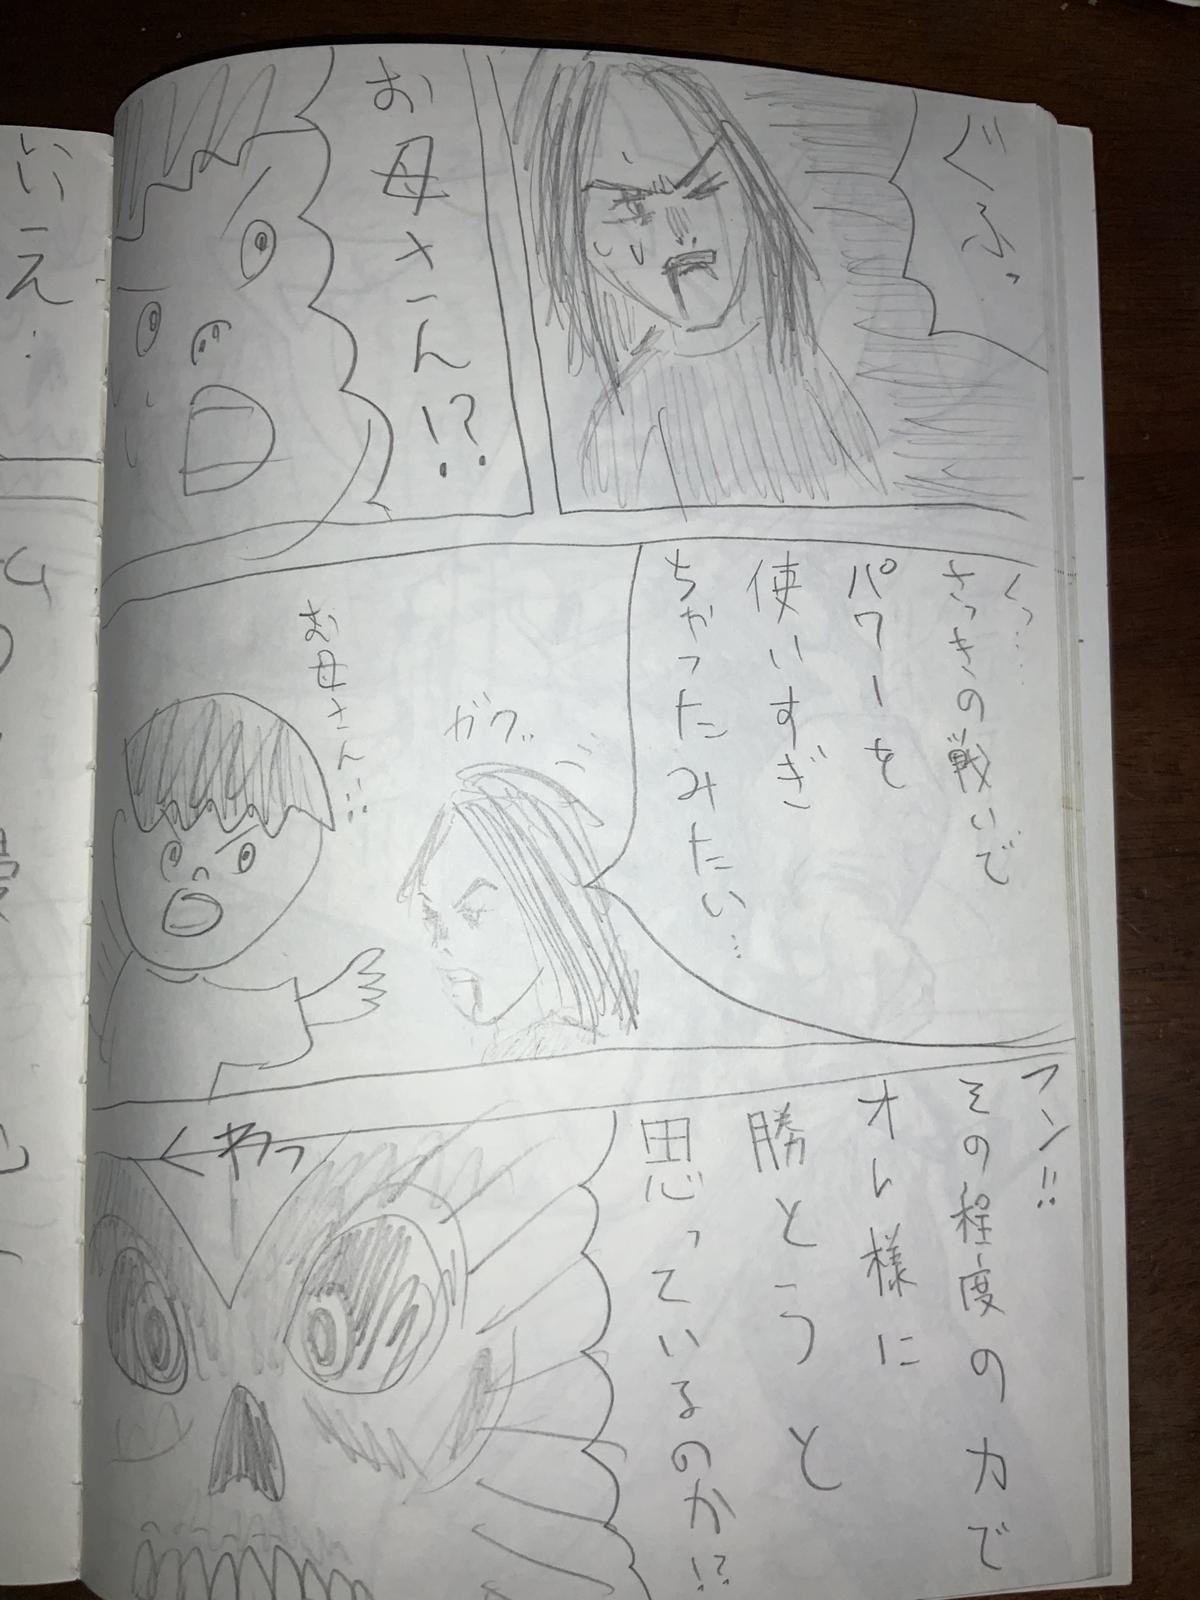 ぐふっ
お母さん!?
くっ…
さっきの戦いで
パワーを
使いすぎ
ちゃったみたい…
ガクッ
お母さん!!
フン!!
その程度の力で
オレ様に
勝とうと
思っているのか!?
いえ…